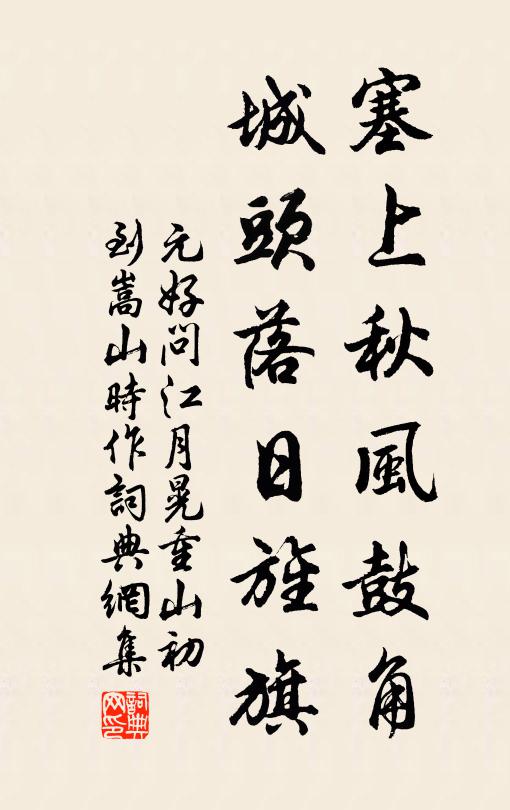 塞上秋風鼓角
城頭落日旌旗
元好問江月晃重山初
到嵩山時作詞典網集
詞典
网印